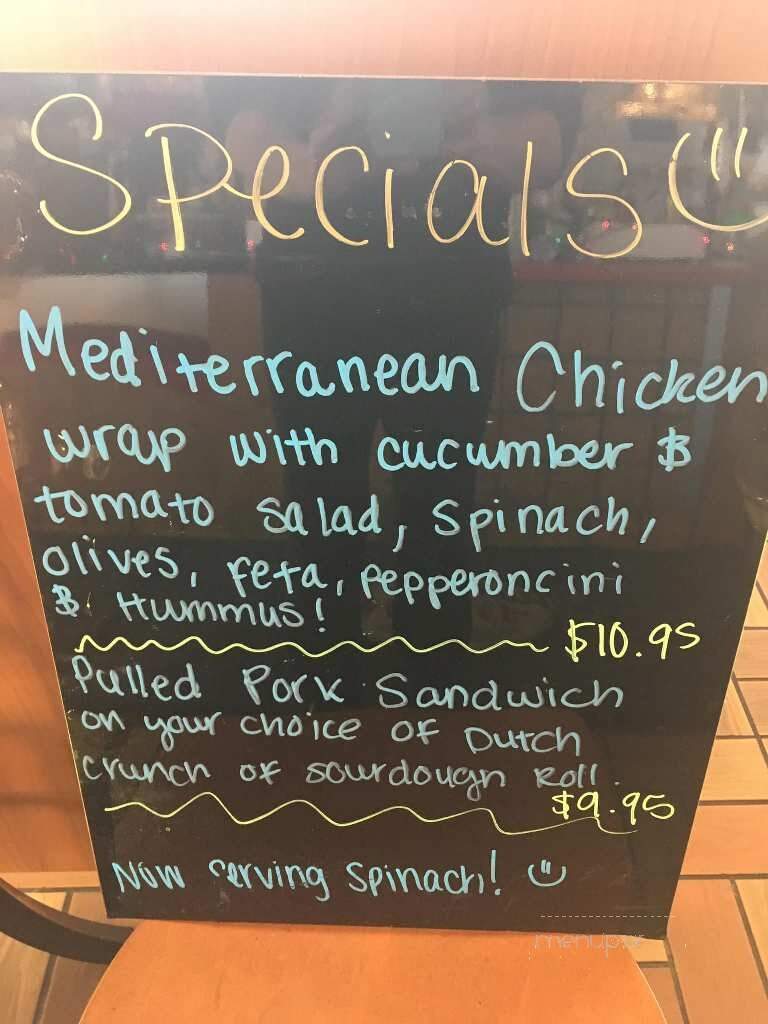 Specials
Mediterranean Chicken
wrap with cucumber &
tomato salad, spinach,
olives, feta, pepperoncini
& Hummus!
$10.95
Pulled Pork Sandwich
on your choice of Dutch
crunch of sourdough Roll.
$9.95
Now serving Spinach!